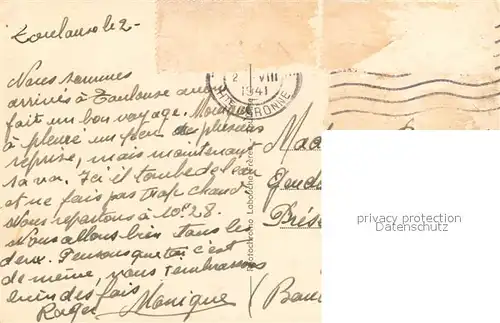 Toulouse le 2 -
Nous sommes
arrivés à Toulouse
fait un bon voyage. Monique
à pleuré un peu de plusieurs
reprise, mais maintenant
sa va. Ici il tombe de l'eau
et ne fais pas trop chaud
Nous repartons à 10h 28.
Nous allons bien tous les
deux. Pensons que toi c'est
de même, nous t'embrassons
bien des fois
Roger Monique
2 VIII
1941
Hte GARONNE
Mad
Présé
(Ban
privacy protection
Datenschutz